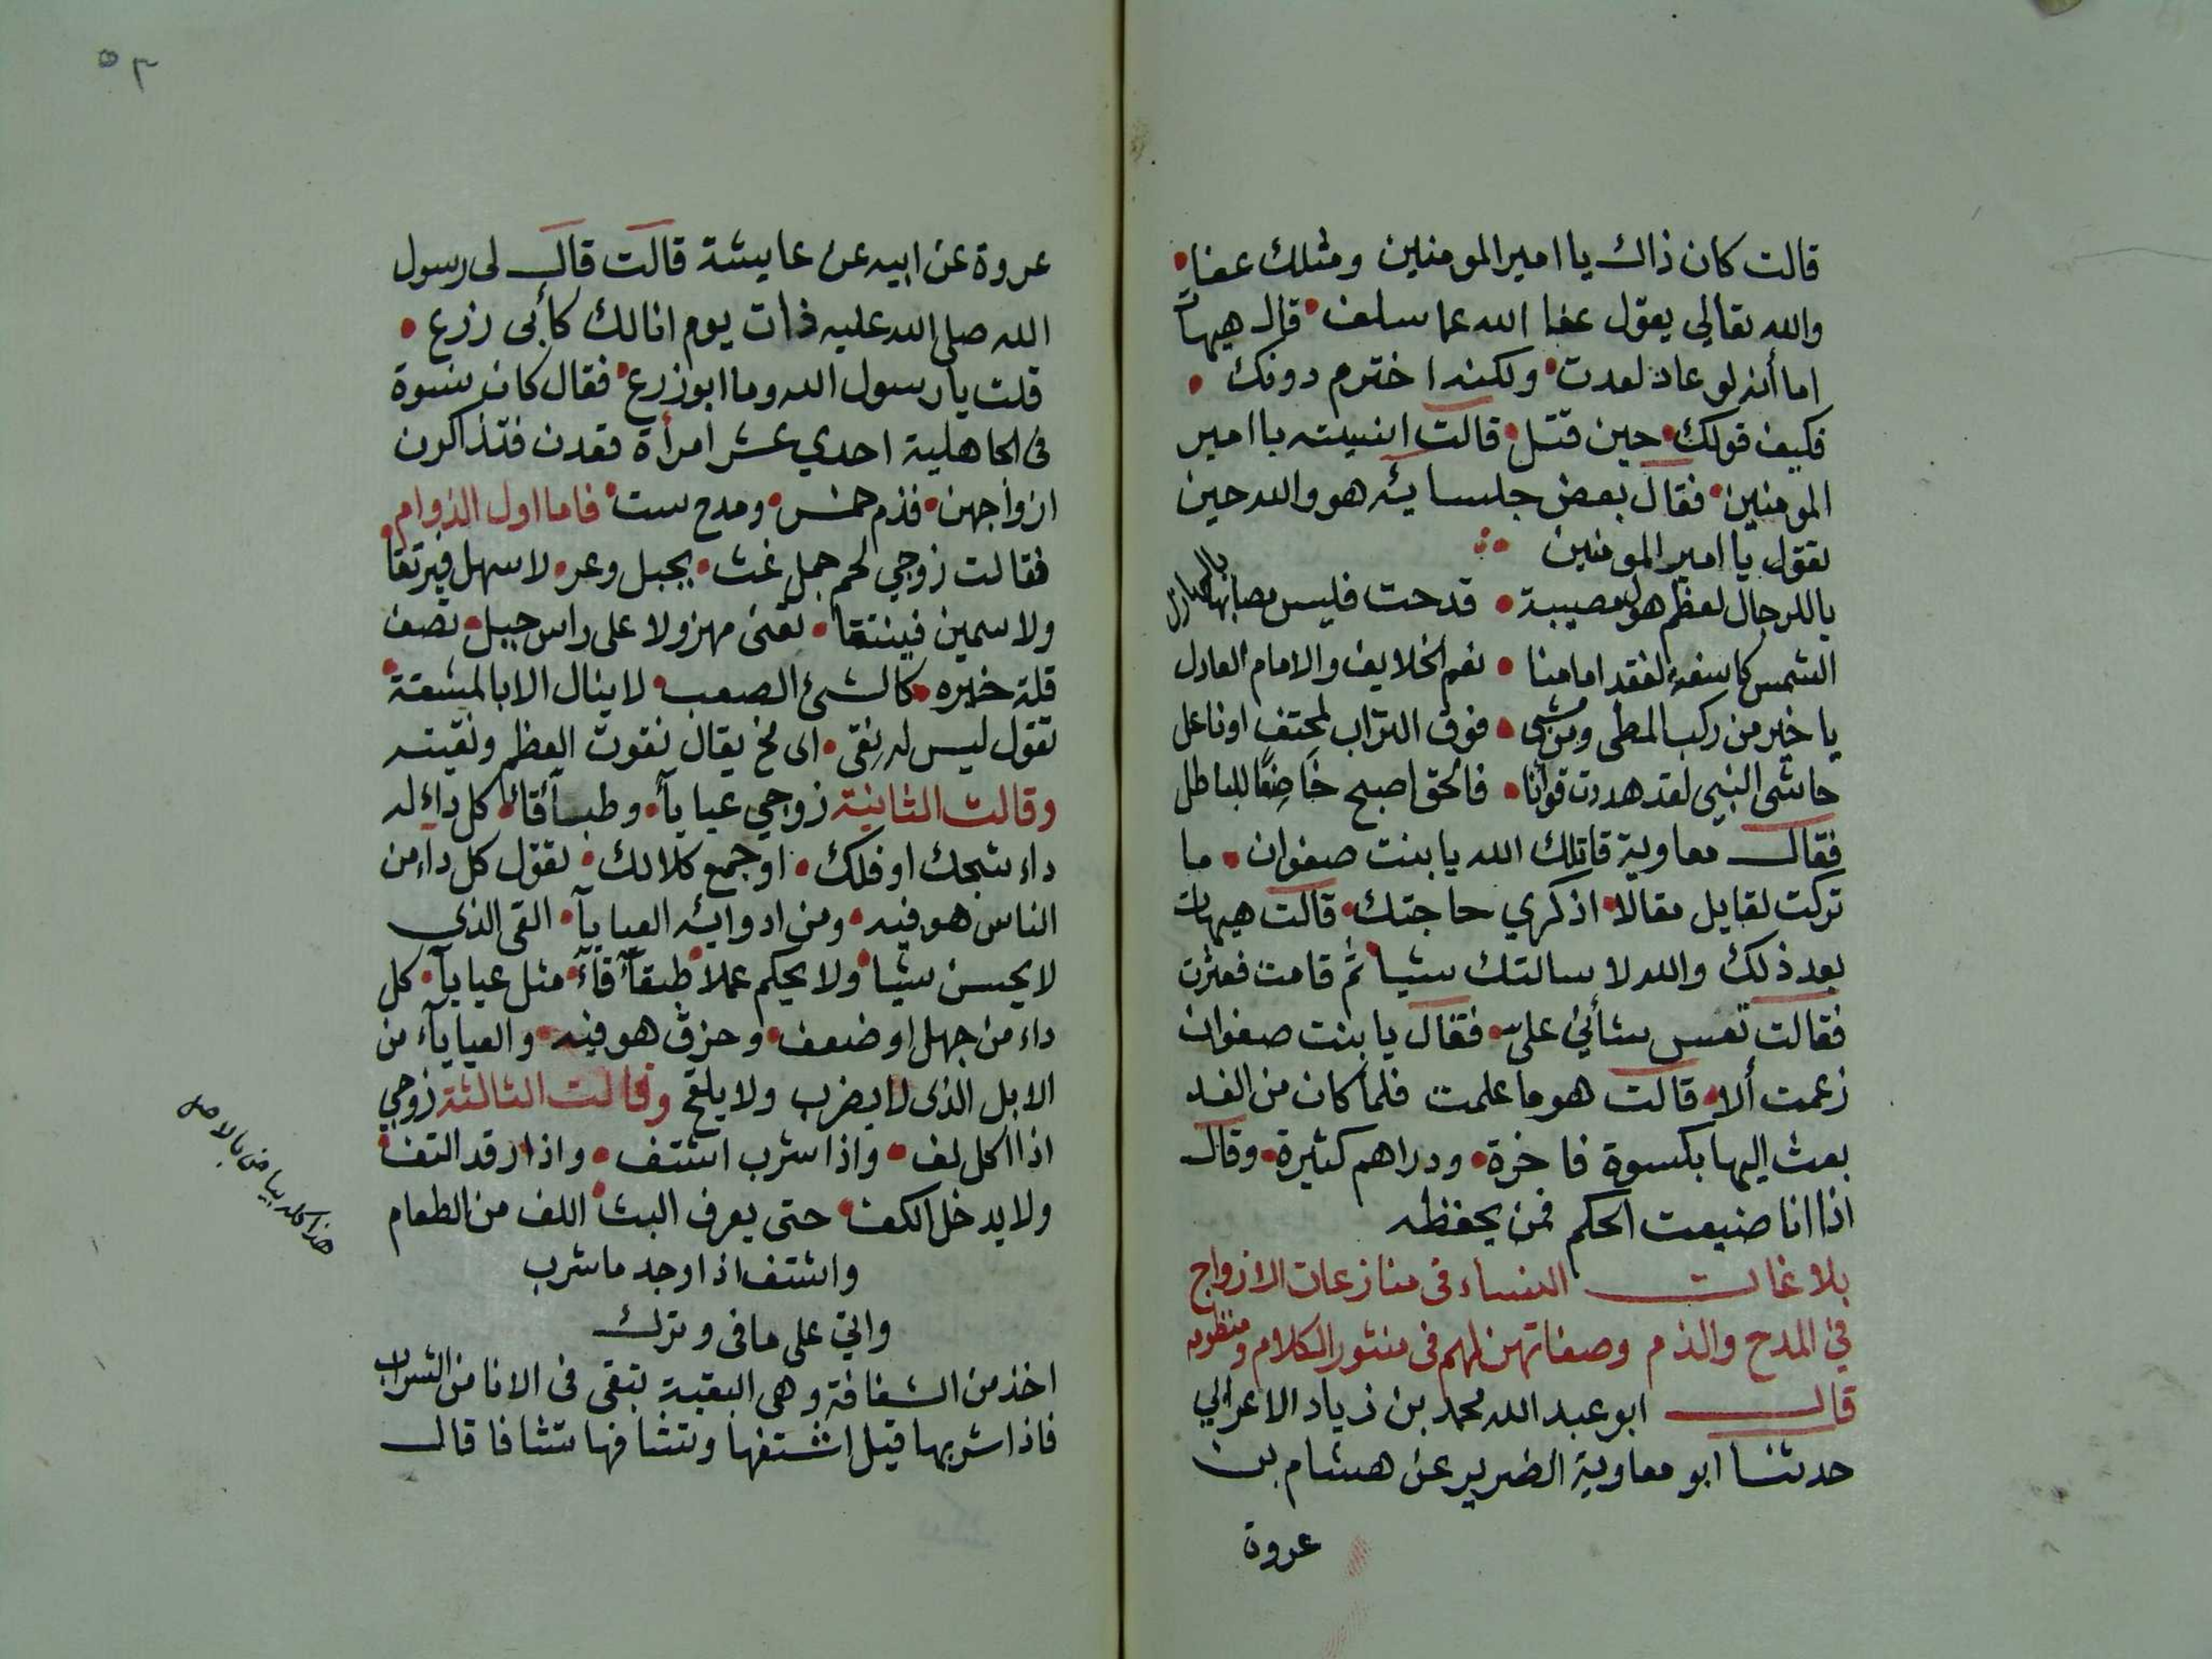 قالت كان ذاك يا امير المومنين ومثلك عفا
والله تعالي يقول عفا الله عما سلف قال هيهات
اما أنه لو عاد لعدت ولكنه اخترم دونك
فكيف قولك حين قتل قالت انسيته يا امير
المومنين فقال بعض جلسايئه هو والله حين
تقول يا امير المومنين
يا للرجال لعظم هول مصيبة قدحت فليس مصابها بالهازل
الشمس كاسفة لفقد امامنا نعم الخلايف والامام العادل
يا خير من ركب المطى ومن مشى فوق التراب لمحتف او ناعل
حاشى النبي لقد هددت قوأنا فالحق اصبح خاضعًا للباطل
فقال معاوية قاتلك الله يا بنت صفوان ما
تركت لقايل مقالا اذكري حاجتك قالت هيهات
بعد ذلك والله لا سالتك شيا ثم قامت فعثرت
فقالت تعس شأني على فقال يا بنت صفوان
زعمت ألا قالت هو ما علمت فلما كان من الغد
بعث اليها بكسوة فاخرة ودراهم كثيرة وقال
اذا انا ضيعت الحكم فمن يحفظه
بلاغات النساء فى منازعات الازواج
في المدح والذم وصفاتهن لهم فى منثور الكلام ومنظومه
قال ابو عبد الله محمد بن زياد الاعرابي
حدثنا ابو معاوية الضرير عن هشام بن
عروة
٥٢
عروة عن ابيه عن عايشة قالت قال لى رسول
الله صلى الله عليه ذات يوم انا لك كأبى زرع
قلت يا رسول الله وما ابو زرع فقال كان نسوة
فى الجاهلية احدي عشر امرأة قعدن فتذاكرن
ازواجهن فذم خمس ومدح ست فاما اول الذوام
فقالت زوجي لحم جمل غث بجبل وعر لا سهل فيرتقا
ولا سمين فينتقا تعنى مهزولا على راس جبل تصف
قلة خيره كالشئ الصعب لا ينال الا بالمشقة
تقول ليس له نقى اى مخ يقال نقوت العظم ونقيته
وقالت الثانية زوجي عياياء وطباقا كل داء له
داء شجك او فلك او جمع كلا لك تقول كل داء من
الناس هو فيه ومن ادوايئه العياياء القى الذي
لا يحسن شيا ولا يحكم عملا طبقآقآء مثل عياياء كل
داء من جهل او ضعف وحزق هو فيه والعياياء من
الابل الذى لا يضرب ولا يلقح وقالت الثالثة زوجي
اذا اكل لف واذا شرب اشتف واذا رقد التف
ولا يدخل الكف حتى يعرف البث اللف من الطعام
واشتف اذا وجد ما شرب
واتى على ما فى وترك
اخذ من الشفافة وهى البقية تبقى فى الانا من الشراب
فاذا شربها قيل اشتفها وتشافها تشافا قال
هذا كله بياض بالاصل